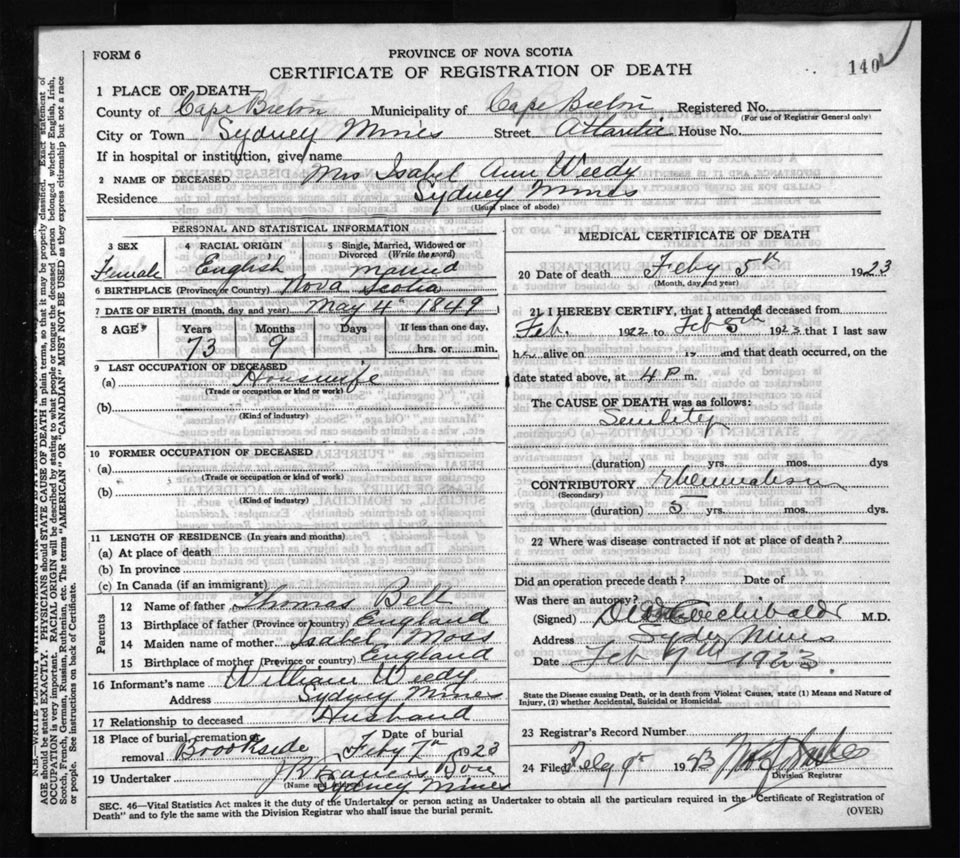 FORM 6
PROVINCE OF NOVA SCOTIA
140
CERTIFICATE OF REGISTRATION OF DEATH
1 PLACE OF DEATH
County of Cape Breton Municipality of Cape Breton Registered No.
(For use of Registrar General only)
City or Town Sydney Mines Street Atlantic House No.
If in hospital or institution, give name
2 NAME OF DECEASED Mrs Isabel Ann Weedy
Residence Sydney Mines
(Usual place of abode)
PERSONAL AND STATISTICAL INFORMATION
3 SEX
Female
4 RACIAL ORIGIN
English
5 Single, Married, Widowed or Divorced (Write the word)
Married
6 BIRTHPLACE (Province or Country) Nova Scotia
7 DATE OF BIRTH (month, day, and year) May 4th 1849
8 AGE Years Months Days If less than one day,
73 9 hrs. or min.
9 LAST OCCUPATION OF DECEASED
(a) Housewife
(Trade or occupation or kind of work)
(b)
(Kind of industry)
10 FORMER OCCUPATION OF DECEASED
(a)
(Trade or occupation or kind of work)
(b)
(Kind of industry)
11 LENGTH OF RESIDENCE (In years and months)
(a) At place of death
(b) In province
(c) In Canada (if an immigrant)
Parents
12 Name of father Thomas Bell
13 Birthplace of father (Province or country) England
14 Maiden name of mother Isabel Moss
15 Birthplace of mother (Province or country) England
16 Informant's name William Weedy
Address Sydney Mines
17 Relationship to deceased Husband
18 Place of burial, cremation or removal Brookside
Date of burial Feby 7th 1923
19 Undertaker
(Name and
Sydney Mines
MEDICAL CERTIFICATE OF DEATH
20 Date of death Feby 5th 1923
(Month, day and year)
21 I HEREBY CERTIFY, that I attended deceased from
Feb. 1922 to Feb 5th 1923 that I last saw
her alive on 19 and that death occurred, on the
date stated above, at 4 P m.
The CAUSE OF DEATH was as follows:
Senility
(duration) yrs. mos. dys
CONTRIBUTORY Rheumatism
(Secondary)
(duration) 5 yrs. mos. dys.
22 Where was disease contracted if not at place of death?
Did an operation precede death? Date of
Was there an autopsy?
(Signed) Archibald M.D.
Address Sydney Mines
Date Feb 1923
State the Disease causing Death, or in death from Violent Causes, state (1) Means and Nature of
Injury, (2) whether Accidental, Suicidal or Homicidal.
23 Registrar's Record Number
24 Filed Feby 9th 1923
Division Registrar
SEC. 46—Vital Statistics Act makes it the duty of the Undertaker or person acting as Undertaker to obtain all the particulars required in the "Certificate of Registration of
Death" and to fyle the same with the Division Registrar who shall issue the burial permit.
(OVER)
N.B.—WRITE PLAINLY WITH UNFADING INK
AGE should be stated EXACTLY. PHYSICIANS should STATE CAUSE OF DEATH in plain terms, so that it may be properly classified. Exact statement of
OCCUPATION is very important. RACIAL ORIGIN will be described by stating to what people or tongue the deceased person belonged whether English, Irish,
Scotch, French, German, Russian, Ruthenian, etc. The terms "AMERICAN" OR "CANADIAN" MUST NOT BE USED as they express citizenship but not a race
or people. See instructions on back of Certificate.